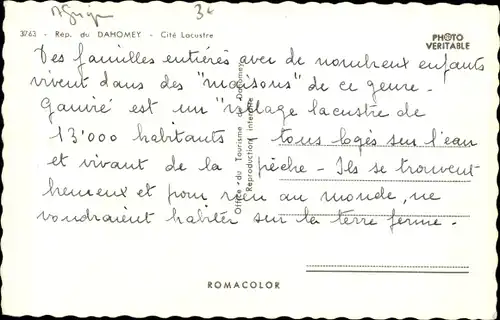 Afrique 3€
3763 - Rép. du DAHOMEY - Cité Lacustre
PHOTO VERITABLE
Des familles entières avec de nombreux enfants
vivent dans des "maisons" de ce genre -
Ganvié est un village lacustre de
13'000 habitants tous logés sur l'eau
et vivant de la pêche - Ils se trouvent
heureux et pour rien au monde, ne
voudraient habiter sur la terre ferme -
Office du Tourisme du Dahomey
Reproduction interdite
ROMACOLOR